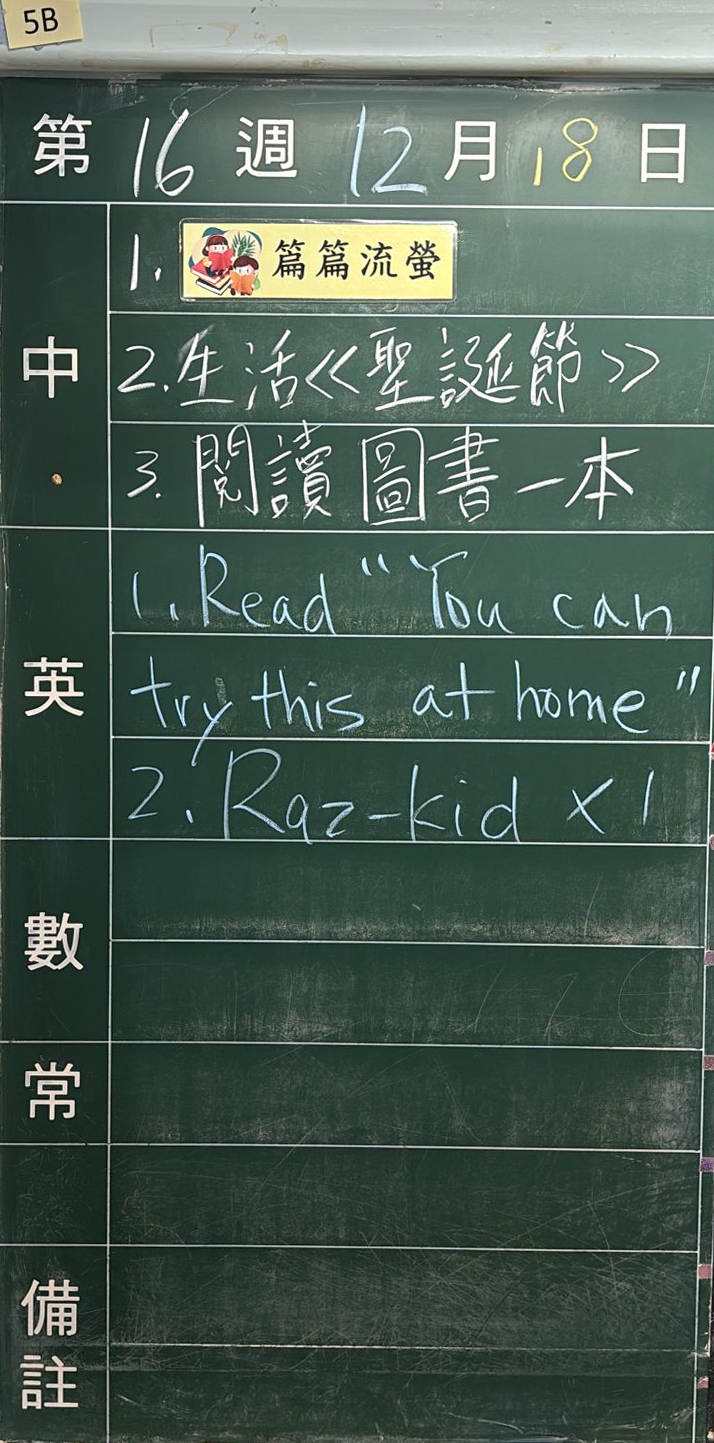 5B
第 16 週 12 月 18 日
中
1. 篇篇流螢
2. 生活《聖誕節》
3. 閱讀圖書一本
英
1. Read "You can
try this at home"
2. Raz-kid × 1
數
常
備註